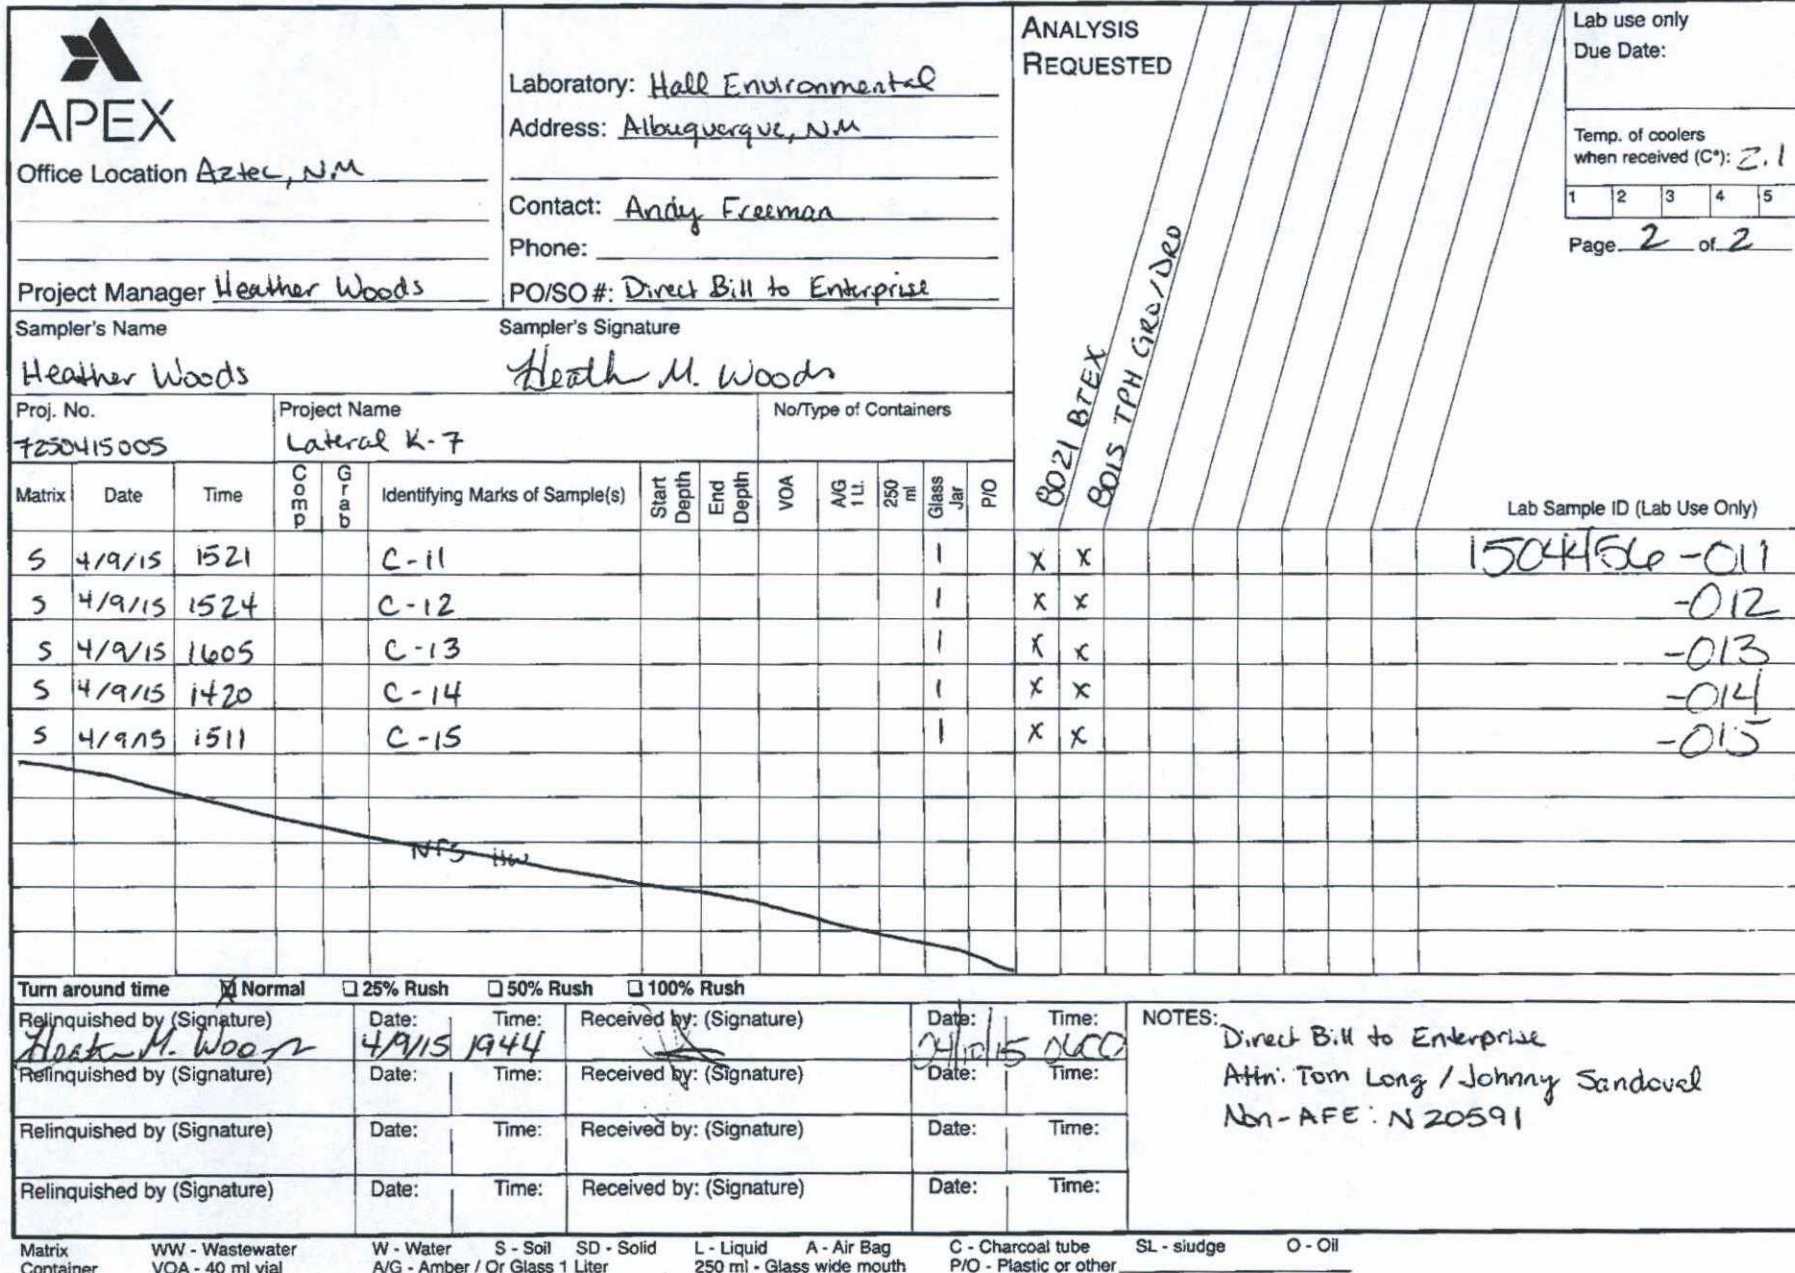 APEX
Office Location Aztec, NM
Project Manager Heather Woods
Laboratory: Hall Environmental
Address: Albuquerque, NM
Contact: Andy Freeman
Phone:
PO/SO #: Direct Bill to Enterprise
ANALYSIS
REQUESTED
8021 BTEX
8015 TPH GRO/DRO
Lab use only
Due Date:
Temp. of coolers
when received (C°): 2.1
1 2 3 4 5
Page 2 of 2
Sampler's Name
Heather Woods
Sampler's Signature
Heath M. Woods
Proj. No.
7250415005
Project Name
Lateral K-7
No/Type of Containers
Matrix Date Time Comp Grab Identifying Marks of Sample(s) Start Depth End Depth VOA A/G 1 Lt. 250 ml Glass Jar P/O Lab Sample ID (Lab Use Only)
S 4/9/15 1521 C-11 1 X X 1504456-011
S 4/9/15 1524 C-12 1 X X -012
S 4/9/15 1605 C-13 1 X X -013
S 4/9/15 1420 C-14 1 X X -014
S 4/9/15 1511 C-15 1 X X -015
NFS HW
Turn around time Normal 25% Rush 50% Rush 100% Rush
Relinquished by (Signature) Date: Time: Received by: (Signature) Date: Time:
Heath M. Woods 4/9/15 1944 04/10/15
Relinquished by (Signature) Date: Time: Received by: (Signature) Date: Time:
Relinquished by (Signature) Date: Time: Received by: (Signature) Date: Time:
Relinquished by (Signature) Date: Time: Received by: (Signature) Date: Time:
NOTES:
Direct Bill to Enterprise
Attn: Tom Long / Johnny Sandoval
Non-AFE: N20591
Matrix WW - Wastewater W - Water S - Soil SD - Solid L - Liquid A - Air Bag C - Charcoal tube SL - sludge O - Oil
Container VOA - 40 ml vial A/G - Amber / Or Glass 1 Liter 250 ml - Glass wide mouth P/O - Plastic or other